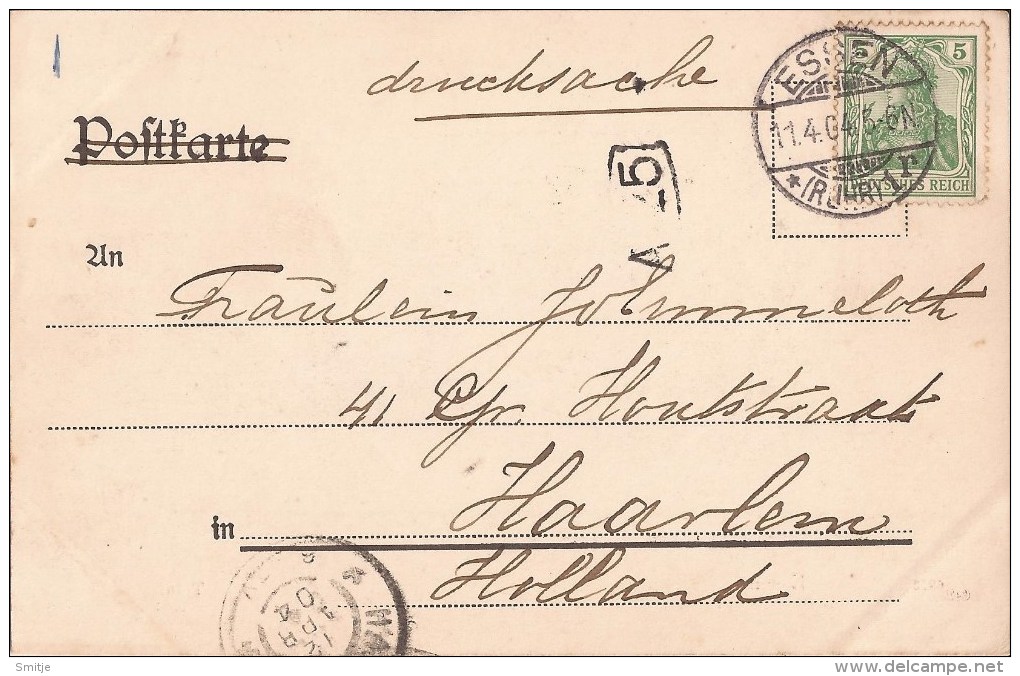 drucksache
Postkarte
5 5
ESSEN
11.4.04. 5-6N.
* (RUHR) 1 r
DEUTSCHES REICH
A 5
An
Fräulein Jo Ummeloth
41 Gr. Houtstraat
in Haarlem
Holland
04
Smitje
www.delcampe.net